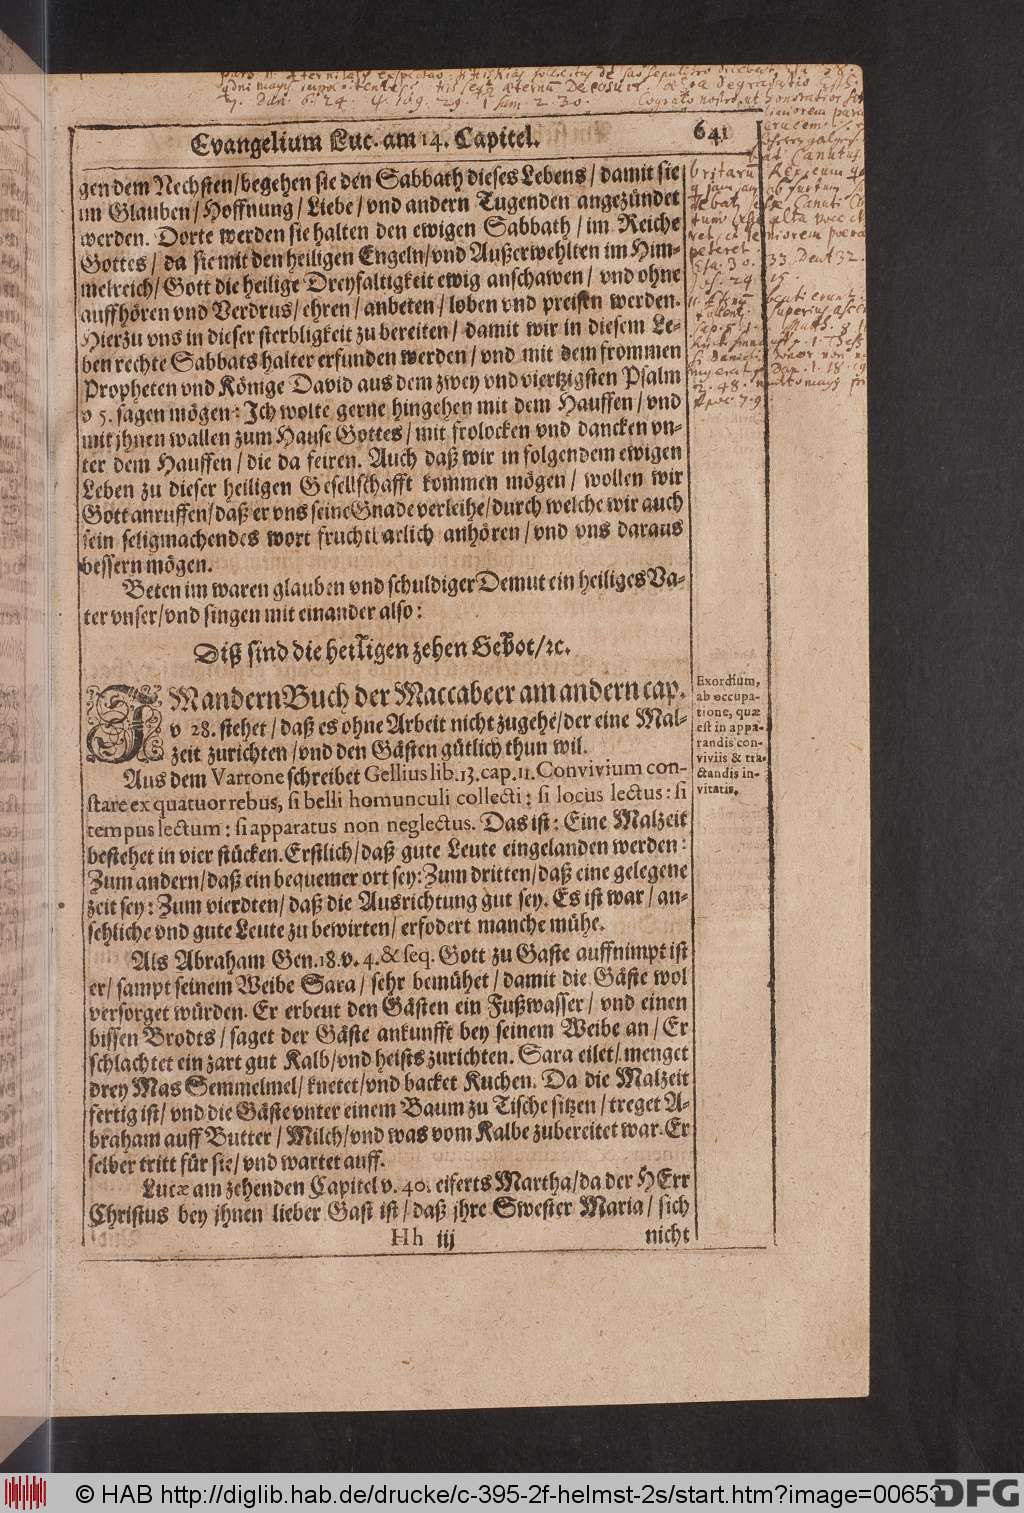 Evangelium Luc. am 14. Capitel.
641
gen dem Nechsten/begehen sie den Sabbath dieses Lebens/ damit sie
im Glauben/ Hoffnung/ Liebe/ vnd andern Tugenden angezündet
werden. Dorte werden sie halten den ewigen Sabbath/ im Reiche
Gottes/ da sie mit den heiligen Engeln/vnd Außerwehlten im Him-
melreich/ Gott die heilige Dreyfaltigkeit ewig anschawen/ vnd ohne
auffhören vnd Verdrus/ ehren/ anbeten/ loben vnd preissen werden.
Hierzu vns in dieser sterbligkeit zu bereiten/ damit wir in diesem Le-
ben rechte Sabbats halter erfunden werden/ vnd mit dem frommen
Propheten vnd Könige David aus dem zwey vnd viertzigsten Psalm
v 5. sagen mögen: Ich wolte gerne hingehen mit dem Hauffen/ vnd
mit jhnen wallen zum Hause Gottes/ mit frolocken vnd dancken vn-
ter dem Hauffen/ die da feiren. Auch daß wir in folgendem ewigen
Leben zu dieser heiligen Gesellschafft kommen mögen/ wollen wir
Gott anruffen/ daß er vns seine Gnade verleihe/durch welche wir auch
sein seligmachendes wort fruchtbarlich anhören/ vnd vns daraus
bessern mögen.
Beten im waren glauben vnd schuldiger Demut ein heiliges Va-
ter vnser/vnd singen mit einander also:
Diß sind die heiligen zehen Gebot/ꝛc.
IM andern Buch der Maccabeer am andern cap.
v 28. stehet/ daß es ohne Arbeit nicht zugehe/der eine Mal-
zeit zurichten/vnd den Gästen gütlich thun wil.
Aus dem Varrone schreibet Gellius lib. 13. cap. 11. Convivium con-
stare ex quatuor rebus, si belli homunculi collecti: si locus lectus: si
tempus lectum: si apparatus non neglectus. Das ist: Eine Malzeit
bestehet in vier stücken. Erstlich/daß gute Leute eingelanden werden:
Zum andern/daß ein bequemer ort sey: Zum dritten/daß eine gelegene
zeit sey: Zum vierdten/daß die Ausrichtung gut sey. Es ist war/ an-
sehliche vnd gute Leute zu bewirten/ erfodert manche mühe.
Als Abraham Gen. 18. v. 4. & seq. Gott zu Gaste auffnimpt ist
er/ sampt seinem Weibe Sara/ sehr bemühet/ damit die Gäste wol
versorget würden. Er erbeut den Gästen ein Fußwasser/ vnd einen
bissen Brodts/ saget der Gäste ankunfft bey seinem Weibe an/ Er
schlachtet ein zart gut Kalb/vnd heists zurichten. Sara eilet/ menget
drey Mas Semmelmel/ knetet/vnd backet Kuchen. Da die Malzeit
fertig ist/ vnd die Gäste vnter einem Baum zu Tische sitzen/ treget A-
braham auff Butter/ Milch/vnd was vom Kalbe zubereitet war. Er
selber tritt für sie/ vnd wartet auff.
Lucæ am zehenden Capitel v. 40. eiferts Martha/da der HErr
Christus bey jhnen lieber Gast ist/ daß jhre Swester Maria/ sich
Hh iij
nicht
Exordium,
ab occupa-
tione, quæ
est in appa-
randis con-
viviis & tra-
ctandis in-
vitatis.
© HAB http://diglib.hab.de/drucke/c-395-2f-helmst-2s/start.htm?image=00653
DFG